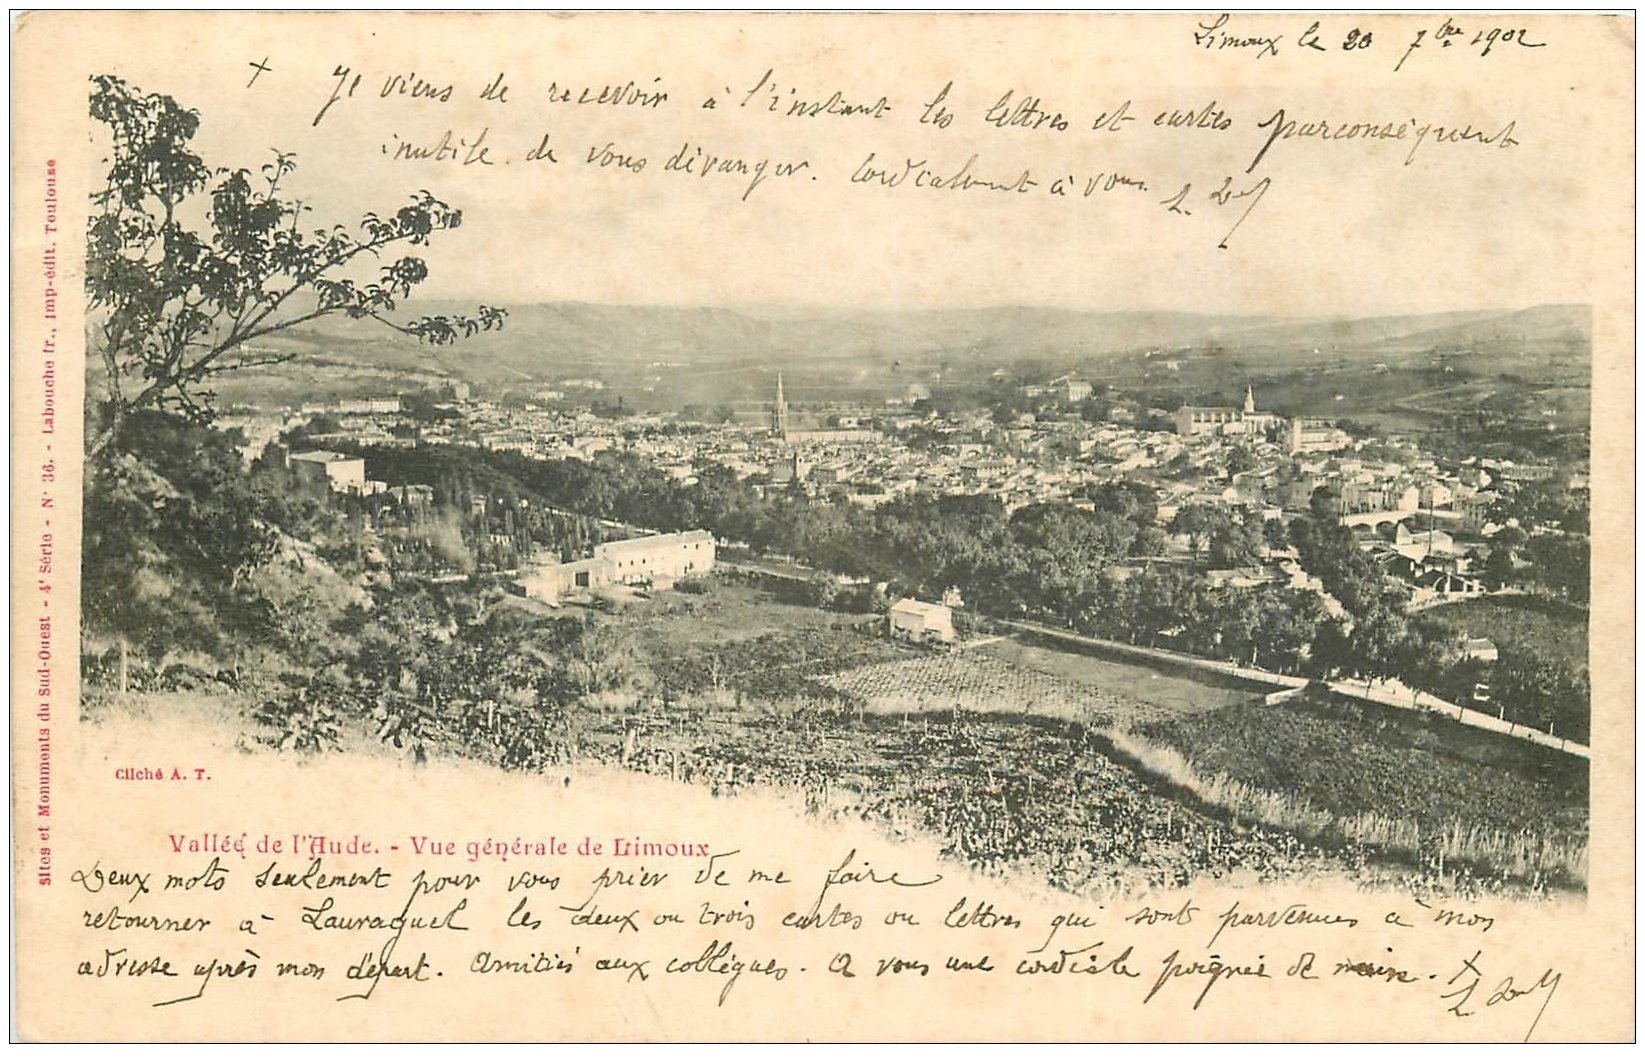 Limoux le 20 7bre 1902
+ Je viens de recevoir à l'instant les lettres et cartes parconséquent
inutile de vous déranger. Cordialement à vous.
Sites et Monuments du Sud-Ouest - 4e Série - N° 36. - Labouche fr., imp-édit. Toulouse
Cliché A. T.
Vallée de l'Aude. - Vue générale de Limoux
Deux mots seulement pour vous prier de me faire
retourner à Lauraguel les deux ou trois cartes ou lettres qui sont parvenues à mon
adresse après mon départ. Amitiés aux collègues. A vous une cordiale poignée de main. +